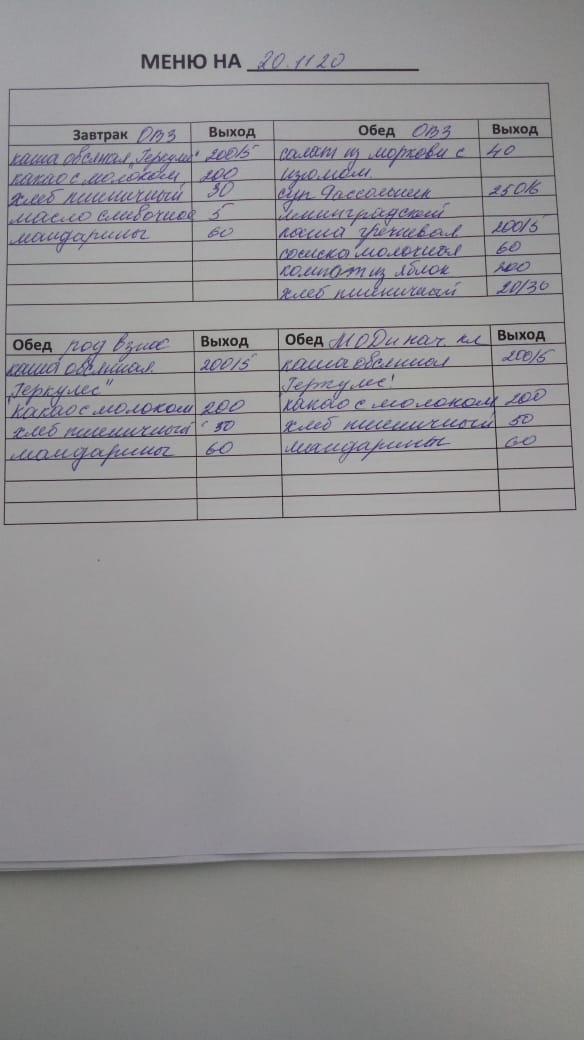 МЕНЮ НА 20.11.20
Завтрак ОВЗ Выход Обед ОВЗ Выход
каша овсяная "Геркулес" 200/5 салат из моркови с 40
какао с молоком 200 изюмом
хлеб пшеничный 30 суп Рассольник 250/6
масло сливочное 5 ленинградский
мандарины 60 каша гречневая 200/5
сосиска молочная 60
компот из яблок 200
хлеб пшеничный 20/30
Обед род взнос Выход Обед МОДи нач. кл Выход
каша овсяная 200/5 каша овсяная 200/5
"Геркулес" Геркулес"
какао с молоком 200 какао с молоком 200
хлеб пшеничный 30 хлеб пшеничный 30
мандарины 60 мандарины 60